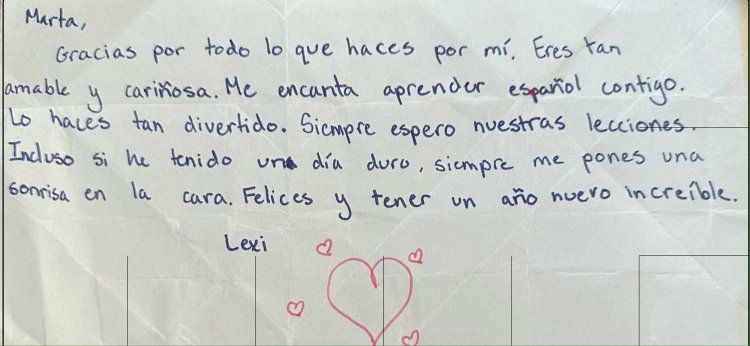 Marta,
Gracias por todo lo que haces por mí. Eres tan
amable y cariñosa. Me encanta aprender español contigo.
Lo haces tan divertido. Siempre espero nuestras lecciones.
Incluso si he tenido una día duro, siempre me pones una
sonrisa en la cara. Felices y tener un año nuevo increíble.
Lexi